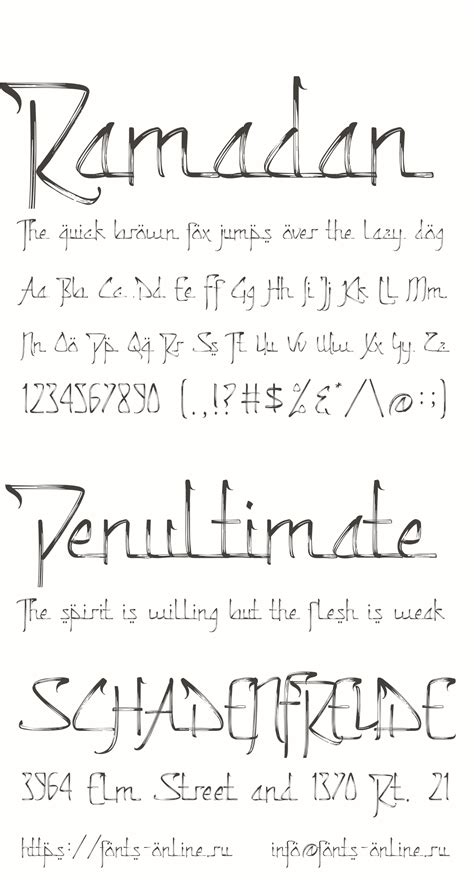 Ramadan
The quick brown fox jumps over the lazy dog
Aa Bb Cc Dd Ee Ff Gg Hh Ii Jj Kk Ll Mm
Nn Oo Pp Qq Rr Ss Tt Uu Vv Ww Xx Yy Zz
1234567890 (.,!?#$%&*/\@:;)
Penultimate
The spirit is willing but the flesh is weak
SCHADENFREUDE
3964 Elm Street and 1370 Rt. 21
https://fonts-online.ru info@fonts-online.ru